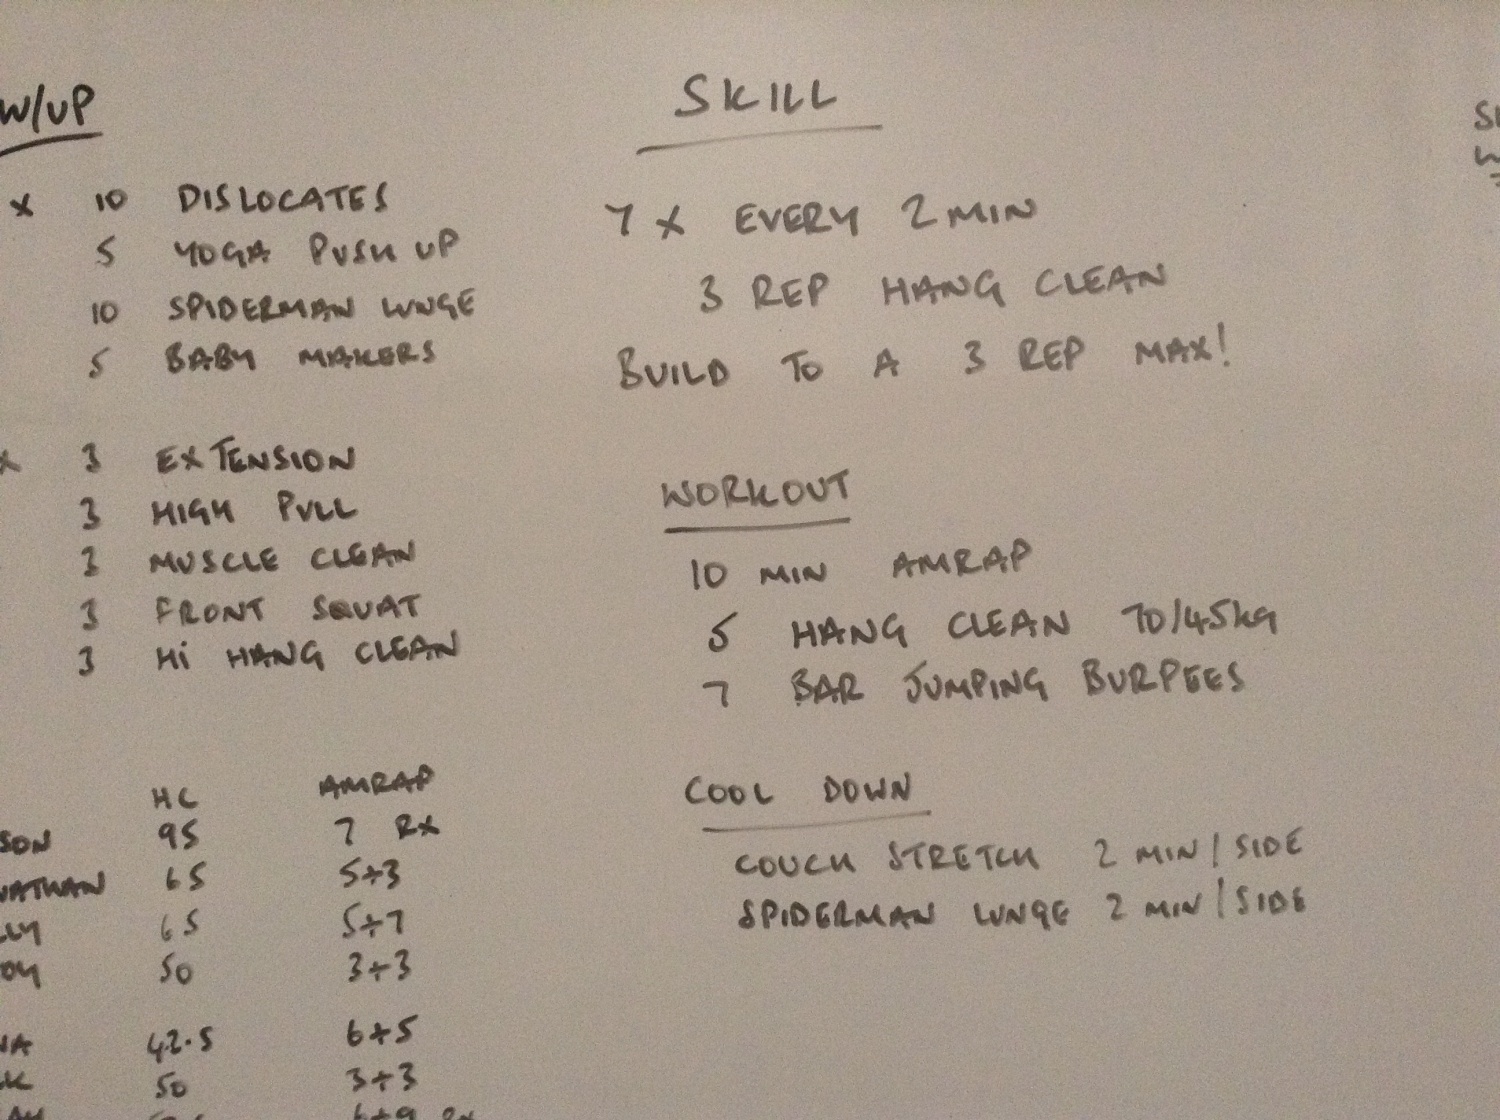 W/UP
X 10 DISLOCATES
5 YOGA PUSH UP
10 SPIDERMAN LUNGE
5 BABY MAKERS
X 3 EXTENSION
3 HIGH PULL
3 MUSCLE CLEAN
3 FRONT SQUAT
3 Hi HANG CLEAN
HC AMRAP
SON 95 7 RX
NATHAN 65 5+3
LLY 65 5+7
OY 50 3+3
NA 42.5 6+5
K 50 3+3
6+9
SKILL
7 X EVERY 2 MIN
3 REP HANG CLEAN
BUILD TO A 3 REP MAX!
WORKOUT
10 MIN AMRAP
5 HANG CLEAN 70/45kg
7 BAR JUMPING BURPEES
COOL DOWN
COUCH STRETCH 2 MIN/SIDE
SPIDERMAN LUNGE 2 MIN/SIDE